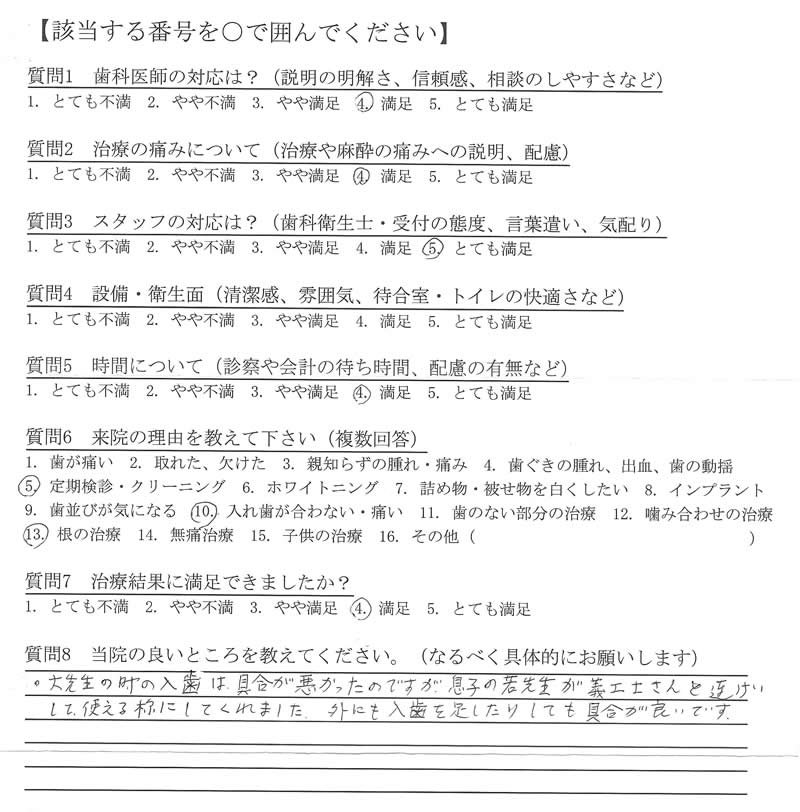 【該当する番号を〇で囲んでください】
質問1　歯科医師の対応は？（説明の明解さ、信頼感、相談のしやすさなど）
1. とても不満 2. やや不満 3. やや満足 4. 満足 5. とても満足
質問2　治療の痛みについて（治療や麻酔の痛みへの説明、配慮）
1. とても不満 2. やや不満 3. やや満足 4. 満足 5. とても満足
質問3　スタッフの対応は？（歯科衛生士・受付の態度、言葉遣い、気配り）
1. とても不満 2. やや不満 3. やや満足 4. 満足 5. とても満足
質問4　設備・衛生面（清潔感、雰囲気、待合室・トイレの快適さなど）
1. とても不満 2. やや不満 3. やや満足 4. 満足 5. とても満足
質問5　時間について（診察や会計の待ち時間、配慮の有無など）
1. とても不満 2. やや不満 3. やや満足 4. 満足 5. とても満足
質問6　来院の理由を教えて下さい（複数回答）
1. 歯が痛い 2. 取れた、欠けた 3. 親知らずの腫れ・痛み 4. 歯ぐきの腫れ、出血、歯の動揺
5. 定期検診・クリーニング 6. ホワイトニング 7. 詰め物・被せ物を白くしたい 8. インプラント
9. 歯並びが気になる 10. 入れ歯が合わない・痛い 11. 歯のない部分の治療 12. 噛み合わせの治療
13. 根の治療 14. 無痛治療 15. 子供の治療 16. その他（　　　　　　　　）
質問7　治療結果に満足できましたか？
1. とても不満 2. やや不満 3. やや満足 4. 満足 5. とても満足
質問8　当院の良いところを教えてください。（なるべく具体的にお願いします）
。大先生の時の入歯は、具合が悪かったのですが、息子の若先生が義工士さんと連けい
して、使える様にしてくれました。外にも入歯を足したりしても具合が良いです。